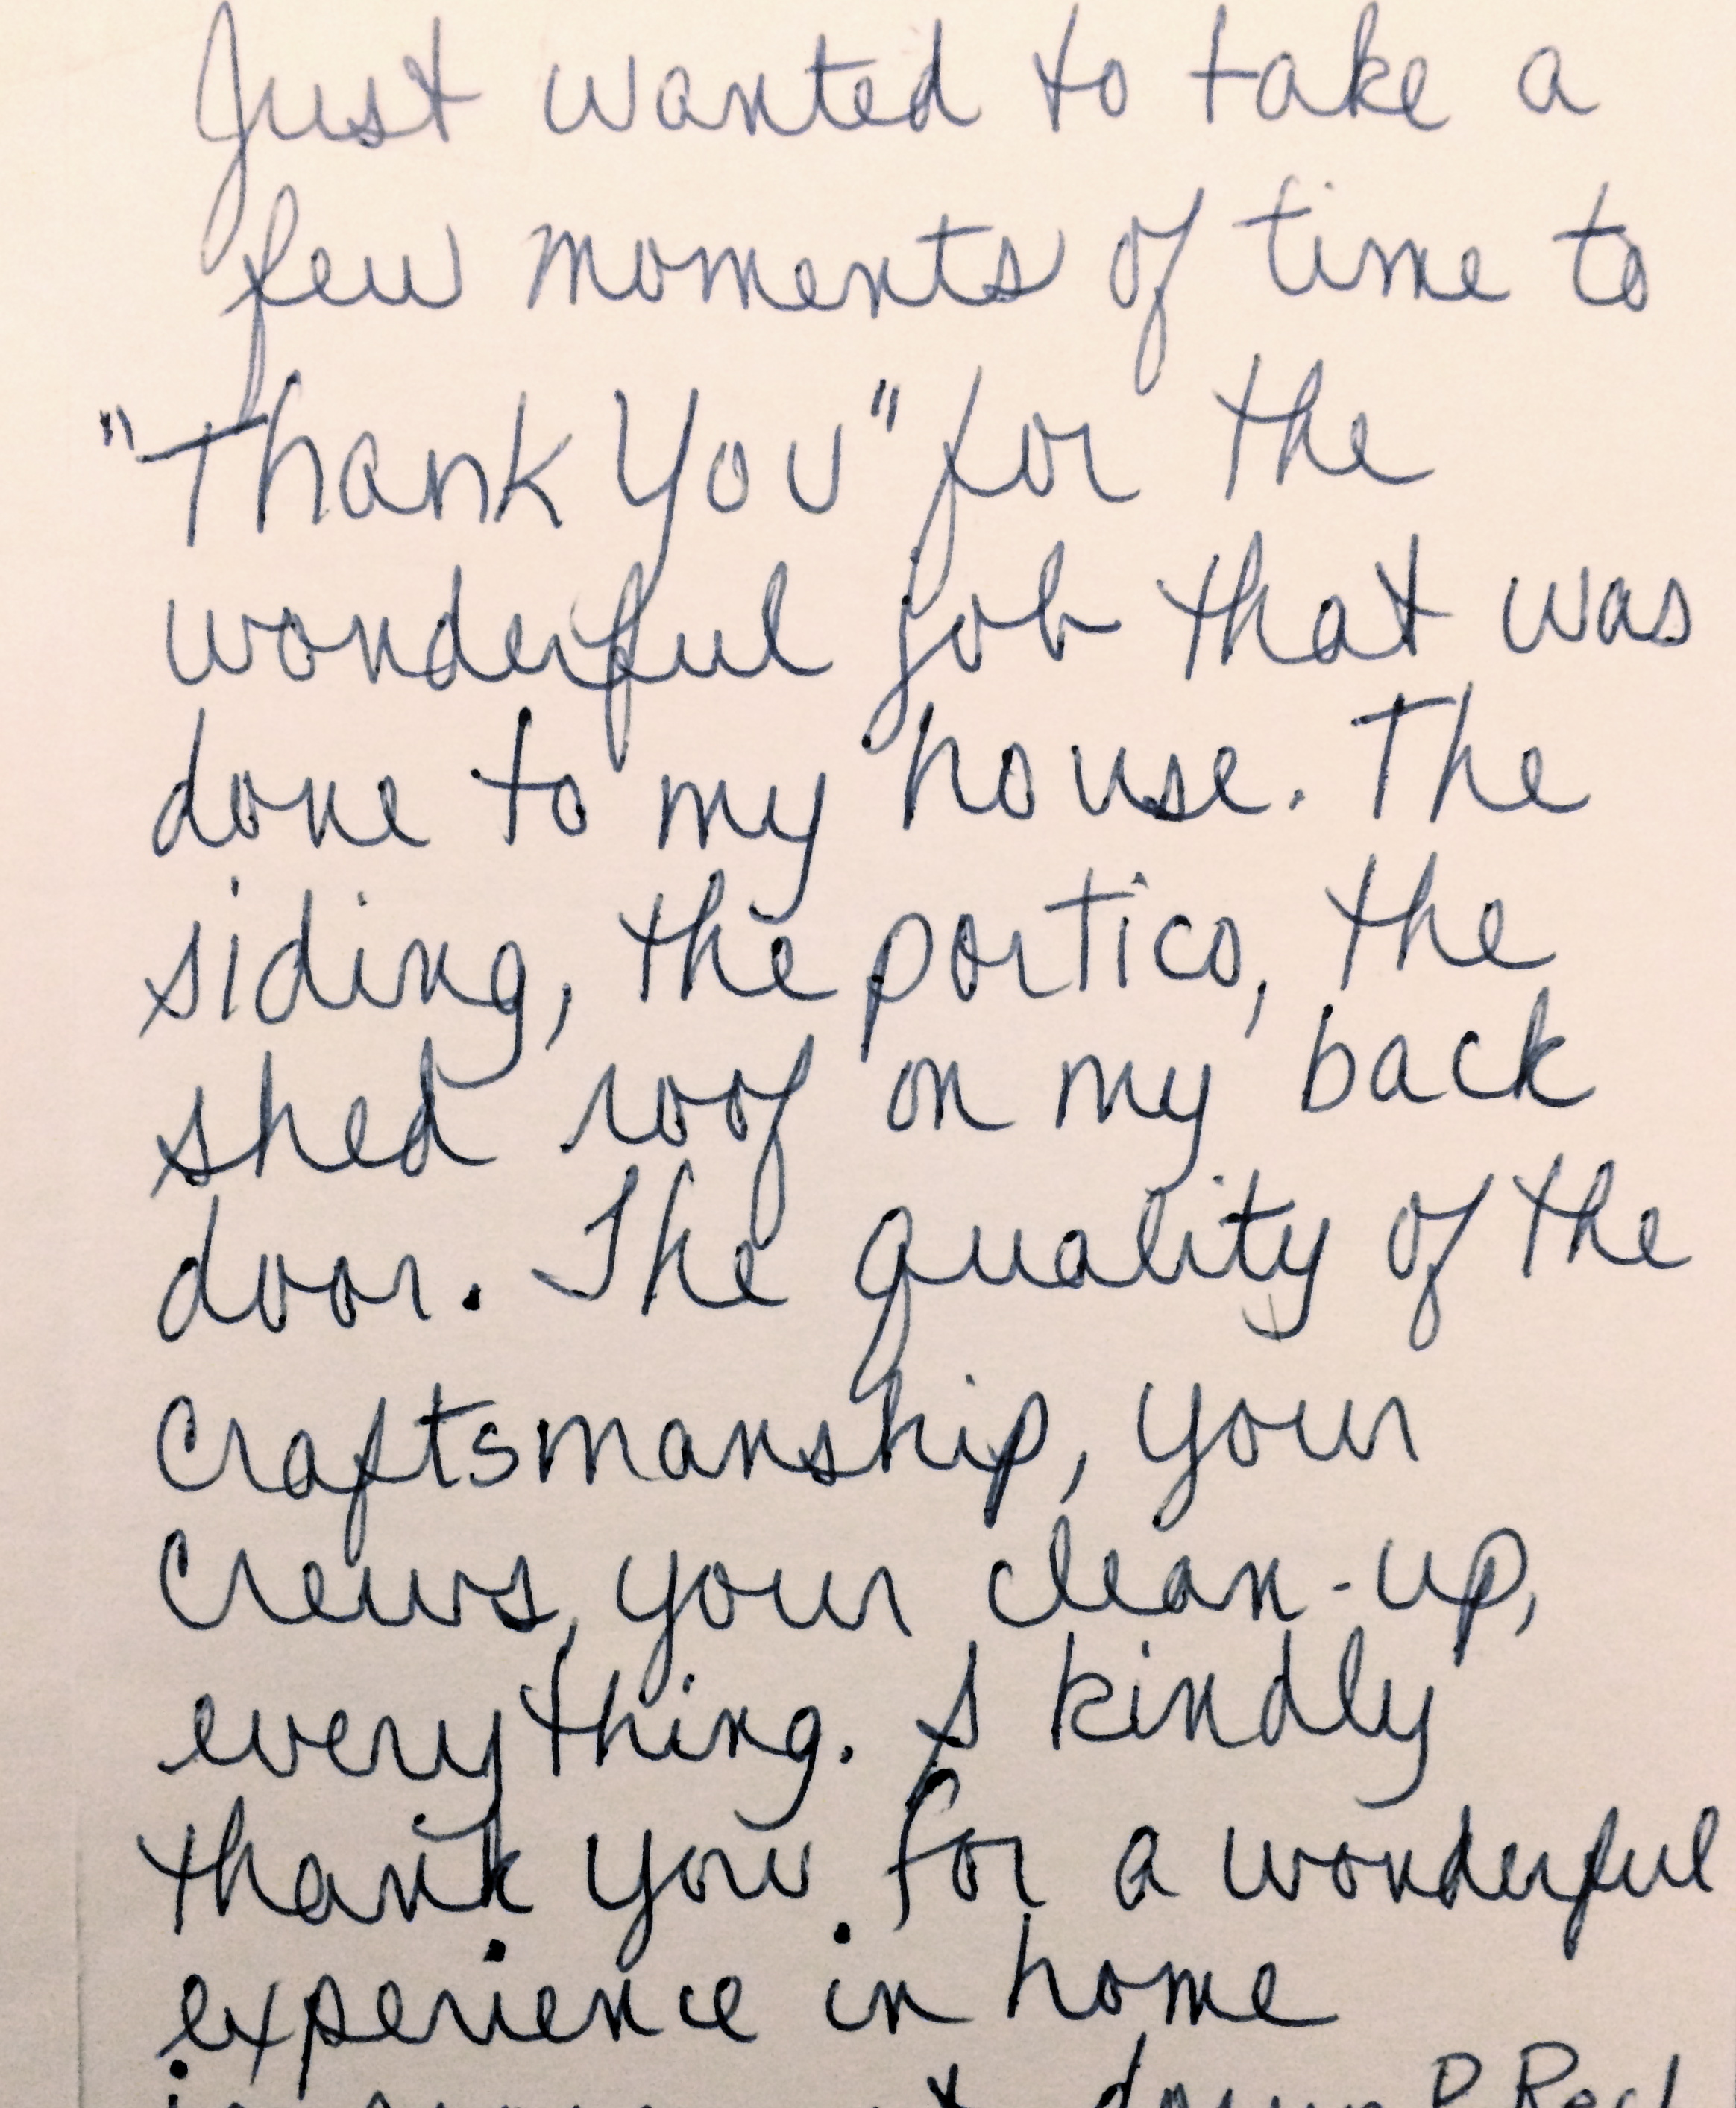 Just wanted to take a
few moments of time to
"Thank You" for the
wonderful job that was
done to my house. The
siding, the portico, the
shed roof on my back
door. The quality of the
craftsmanship, your
crews, your clean-up,
everything. I kindly
thank you for a wonderful
experience in home